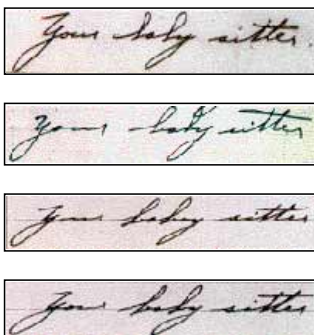 Your baby sitter.
Your body sitter
Your baby sitter
Your baby sitter